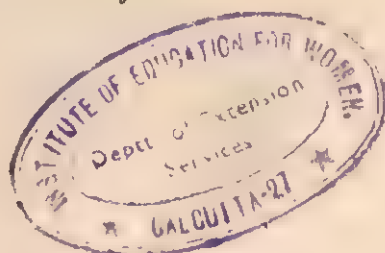 INSTITUTE OF EDUCATION FOR WOMEN.
Deptt. of Extension
Services
★ CALCUTTA-27 ★